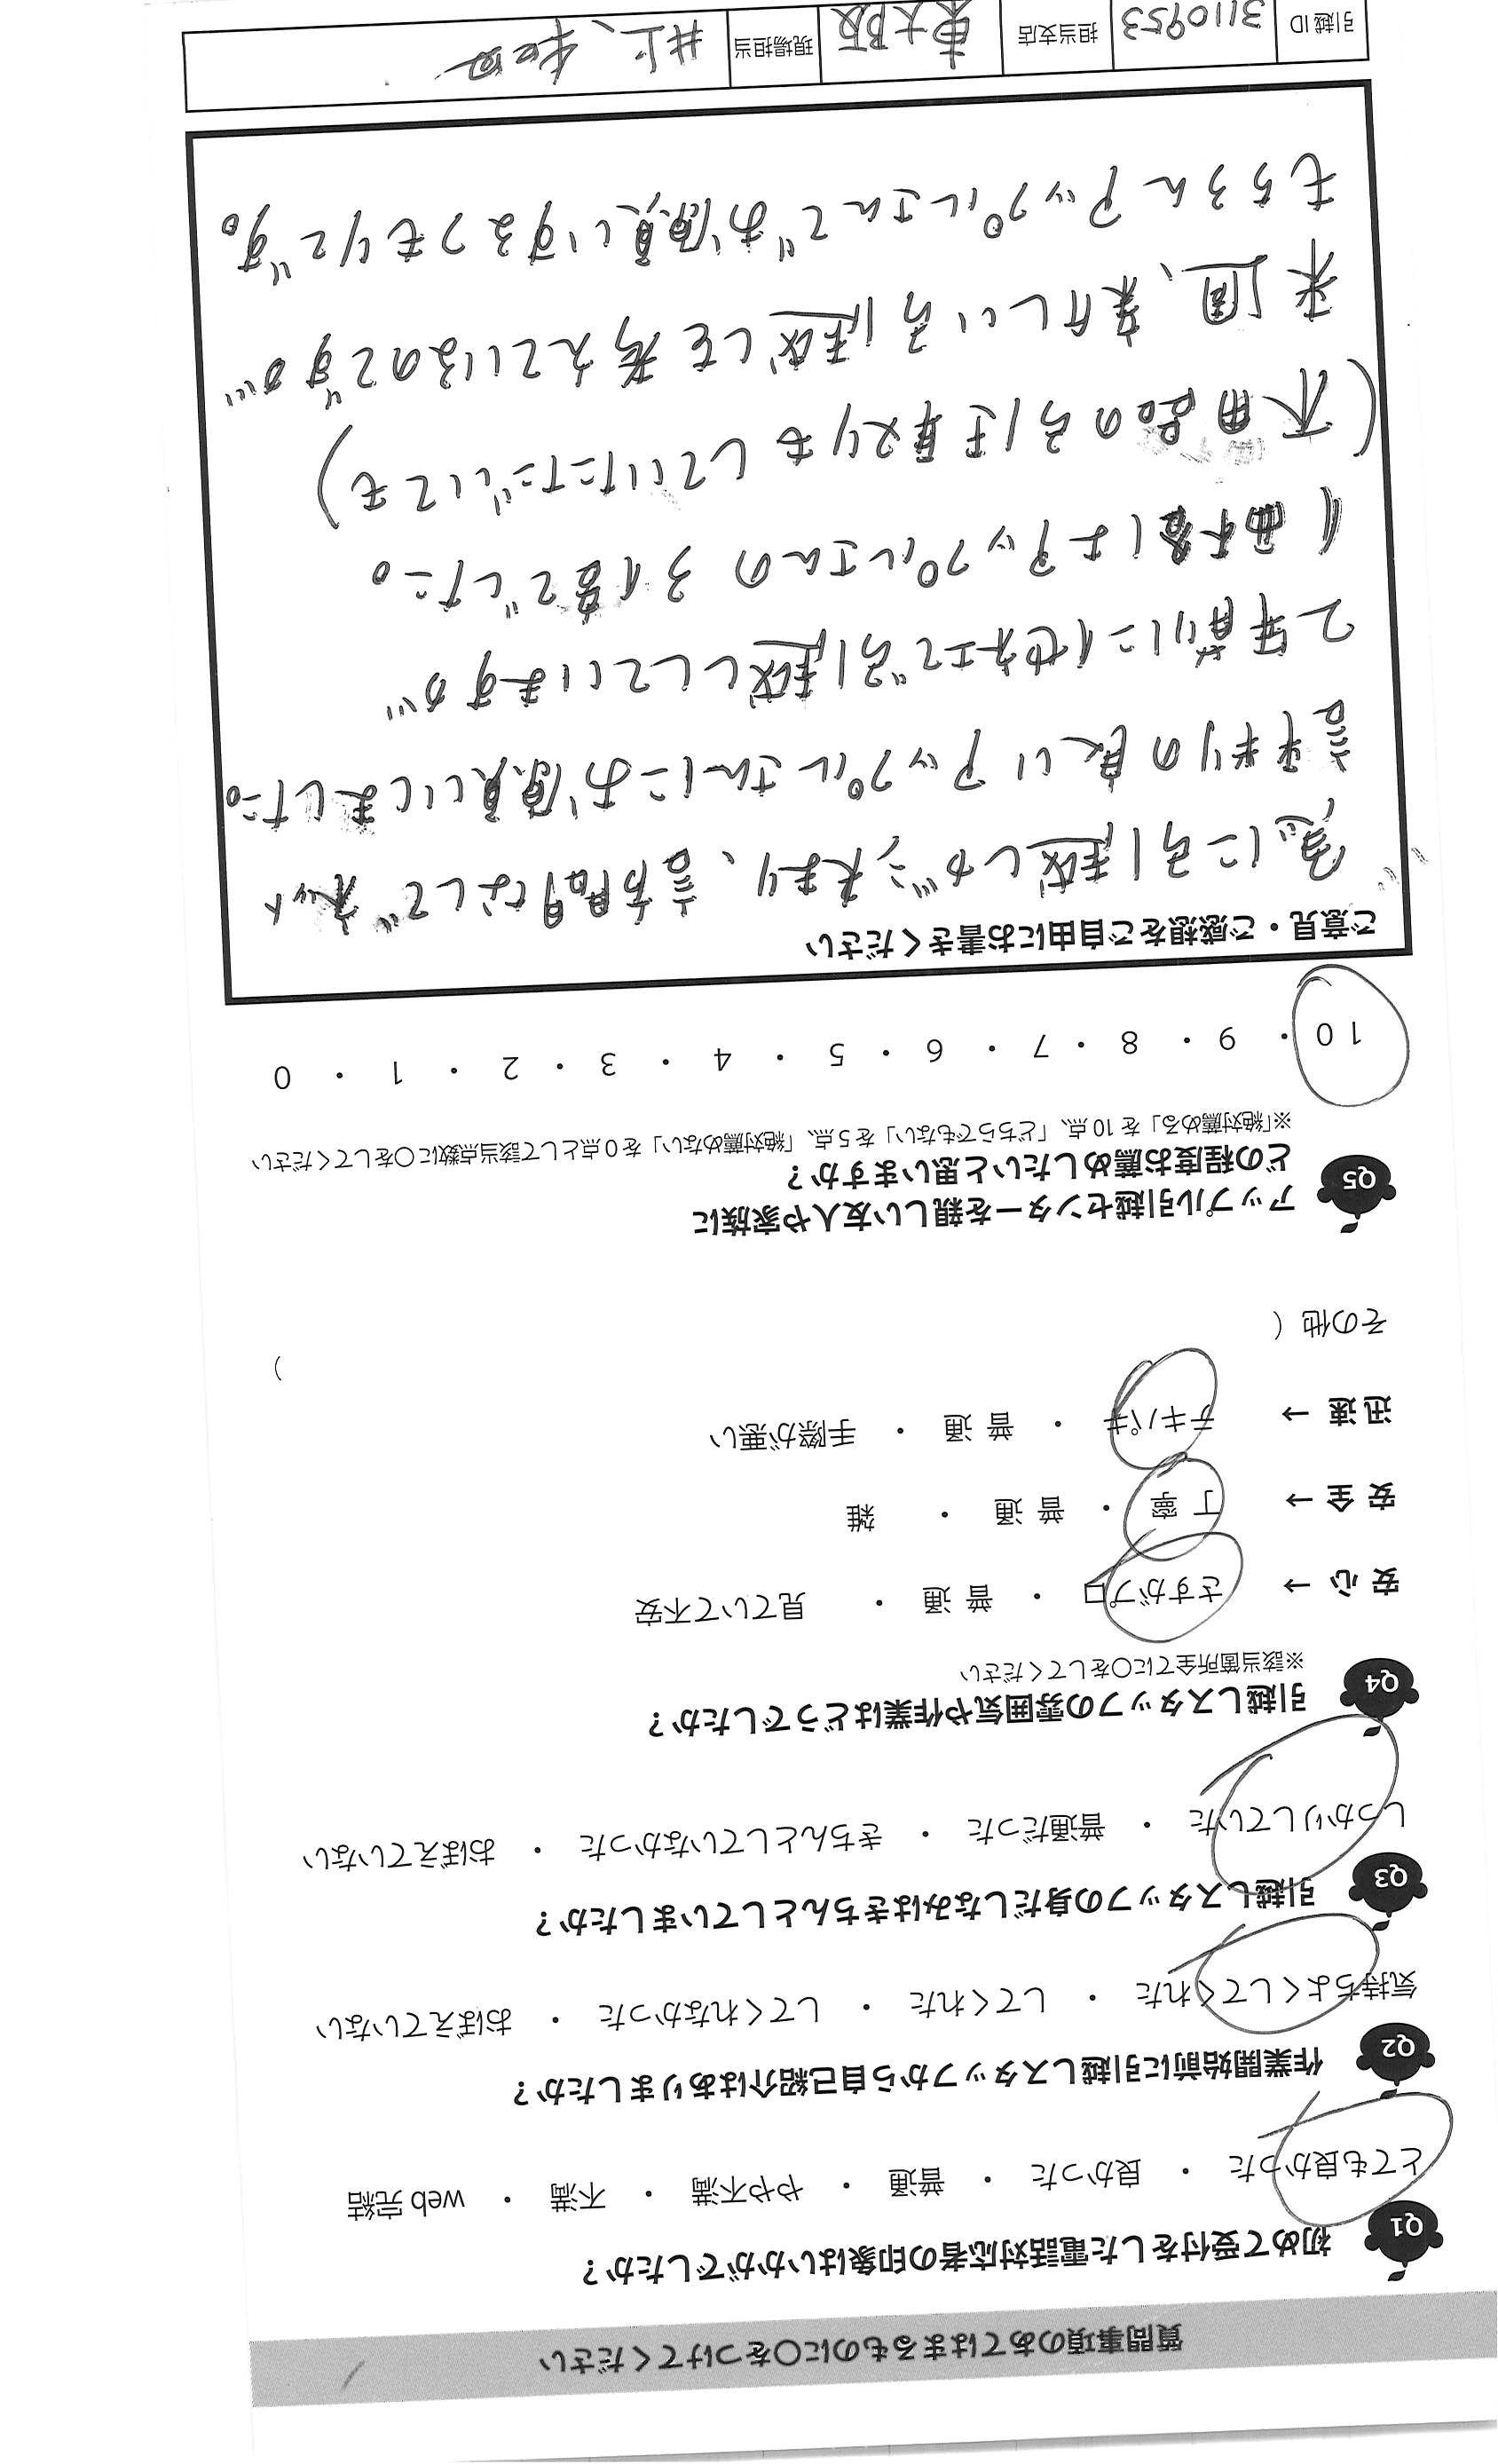 質問事項のあてはまるものに○をつけてください
Q1 初めて受付をした電話対応者の印象はいかがでしたか？
とても良かった ・ 良かった ・ 普通 ・ やや不満 ・ 不満 ・ web 完結
Q2 作業開始前に引越しスタッフから自己紹介はありましたか？
気持ちよくしてくれた ・ してくれた ・ してくれなかった ・ おぼえていない
Q3 引越しスタッフの身だしなみはきちんとしていましたか？
しっかりしていた ・ 普通だった ・ きちんとしていなかった ・ おぼえていない
Q4 引越しスタッフの雰囲気や作業はどうでしたか？
※該当箇所全てに○をしてください
安心 → さすがプロ ・ 普通 ・ 見ていて不安
安全 → 丁寧 ・ 普通 ・ 雑
迅速 → テキパキ ・ 普通 ・ 手際が悪い
その他（ ）
Q5 アップル引越センターを親しい友人や家族に
どの程度お薦めしたいと思いますか？
※「絶対薦める」を 10 点、「どちらでもない」を 5 点、「絶対薦めない」を 0 点として該当点数に○をしてください
10 ・ 9 ・ 8 ・ 7 ・ 6 ・ 5 ・ 4 ・ 3 ・ 2 ・ 1 ・ 0
ご意見・ご感想をご自由にお書きください
急に引越しが決まり、訪問なしでネット
評判の良いアップルさんにお願いしました。
2年前に他社で引越ししていますが
価格はアップルさんの3倍でした。
(不用品の引き取りもしていただいても)
来週、新しい引越しを考えているのですが
もちろんアップルさんでお願いするつもりです。
引越ID 3110953 担当支店 東大阪 現場担当 井上、